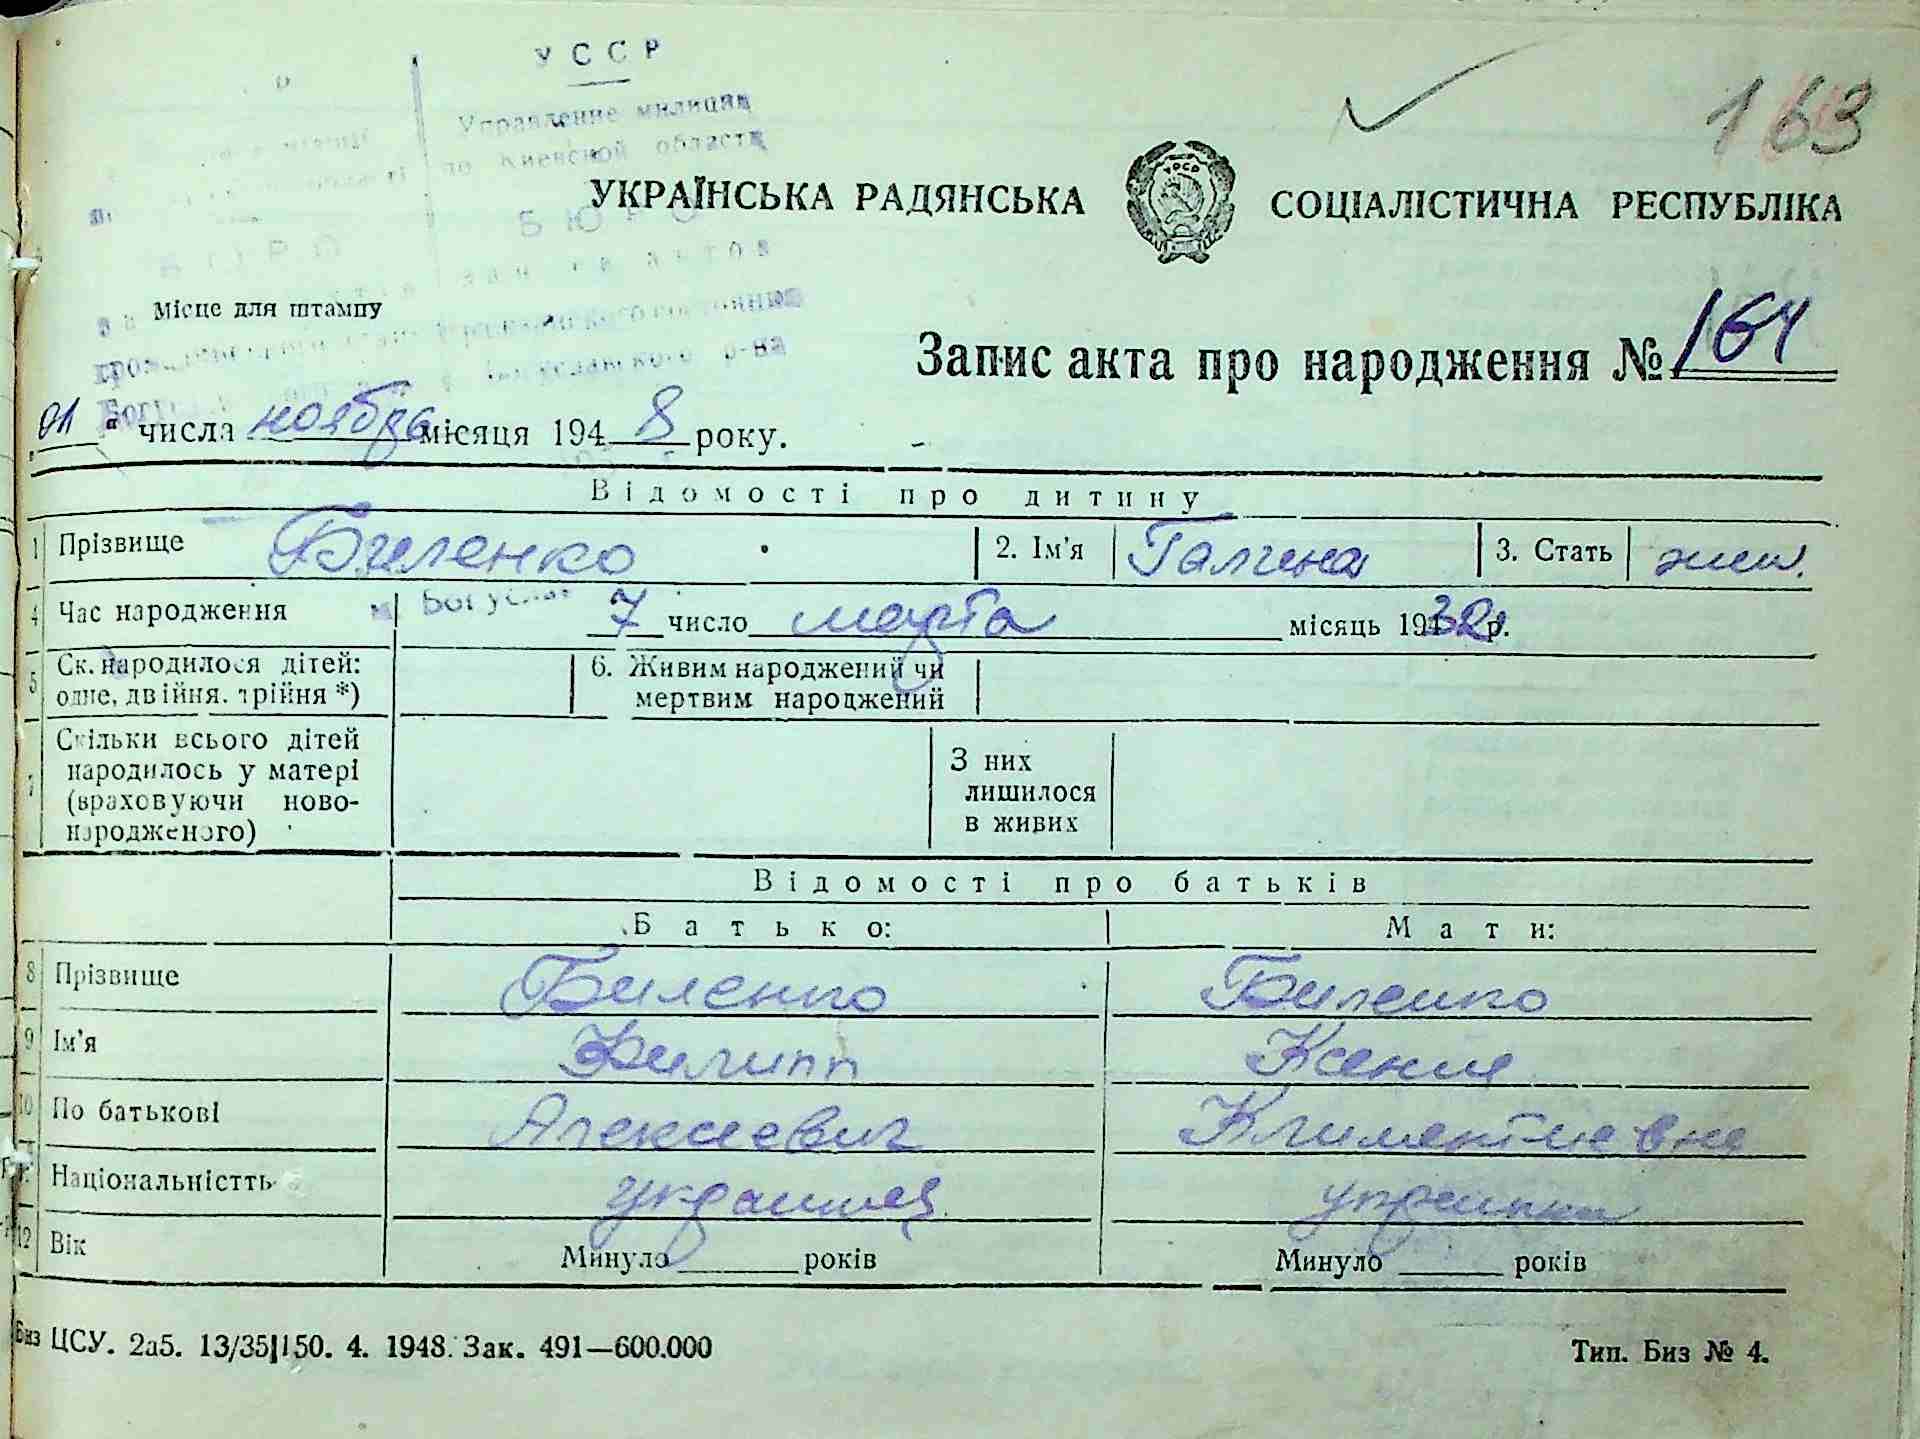 УССР
Управление милиции
по Киевской области
БЮРО
163
УКРАЇНСЬКА РАДЯНСЬКА СОЦІАЛІСТИЧНА РЕСПУБЛІКА
Місце для штампу
Богуславского р-на
Запис акта про народження № 164
01 " числа ноября місяця 1948 року.
Відомості про дитину
1 Прізвище Биленко 2. Ім'я Галина 3. Стать жен.
4 Час народження 7 число марта місяць 1932 р.
5 Ск. народилося дітей: одне, двійня, трійня *) 6. Живим народжений чи мертвим народжений
7 Скільки всього дітей народилось у матері (враховуючи новонародженого) З них лишилося в живих
Відомості про батьків
Батько: Мати:
8 Прізвище Биленко Биленко
9 Ім'я Филипп Ксения
10 По батькові Алексеевич Климентиевна
Національністть украинец украинка
12 Вік Минуло ____ років Минуло ____ років
Биз ЦСУ. 2а5. 13/35|150. 4. 1948. Зак. 491—600.000 Тип. Биз № 4.